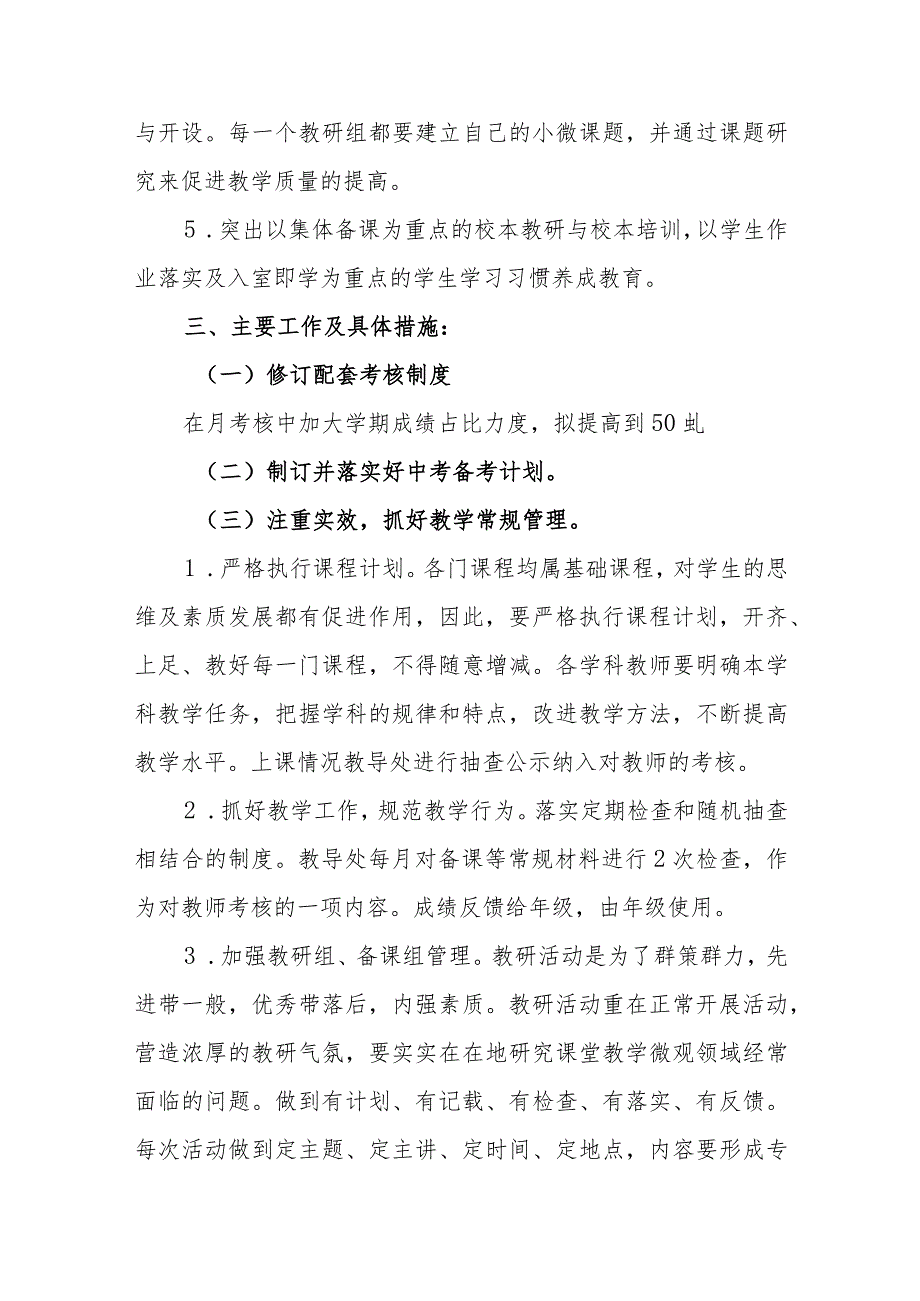 与开设。每一个教研组都要建立自己的小微课题，并通过课题研
究来促进教学质量的提高。
5.突出以集体备课为重点的校本教研与校本培训，以学生作
业落实及入室即学为重点的学生学习习惯养成教育。
三、主要工作及具体措施：
（一）修订配套考核制度
在月考核中加大学期成绩占比力度，拟提高到50虬
（二）制订并落实好中考备考计划。
（三）注重实效，抓好教学常规管理。
1.严格执行课程计划。各门课程均属基础课程，对学生的思
维及素质发展都有促进作用，因此，要严格执行课程计划，开齐、
上足、教好每一门课程，不得随意增减。各学科教师要明确本学
科教学任务，把握学科的规律和特点，改进教学方法，不断提高
教学水平。上课情况教导处进行抽查公示纳入对教师的考核。
2.抓好教学工作，规范教学行为。落实定期检查和随机抽查
相结合的制度。教导处每月对备课等常规材料进行2次检查，作
为对教师考核的一项内容。成绩反馈给年级，由年级使用。
3.加强教研组、备课组管理。教研活动是为了群策群力，先
进带一般，优秀带落后，内强素质。教研活动重在正常开展活动，
营造浓厚的教研气氛，要实实在在地研究课堂教学微观领域经常
面临的问题。做到有计划、有记载、有检查、有落实、有反馈。
每次活动做到定主题、定主讲、定时间、定地点，内容要形成专